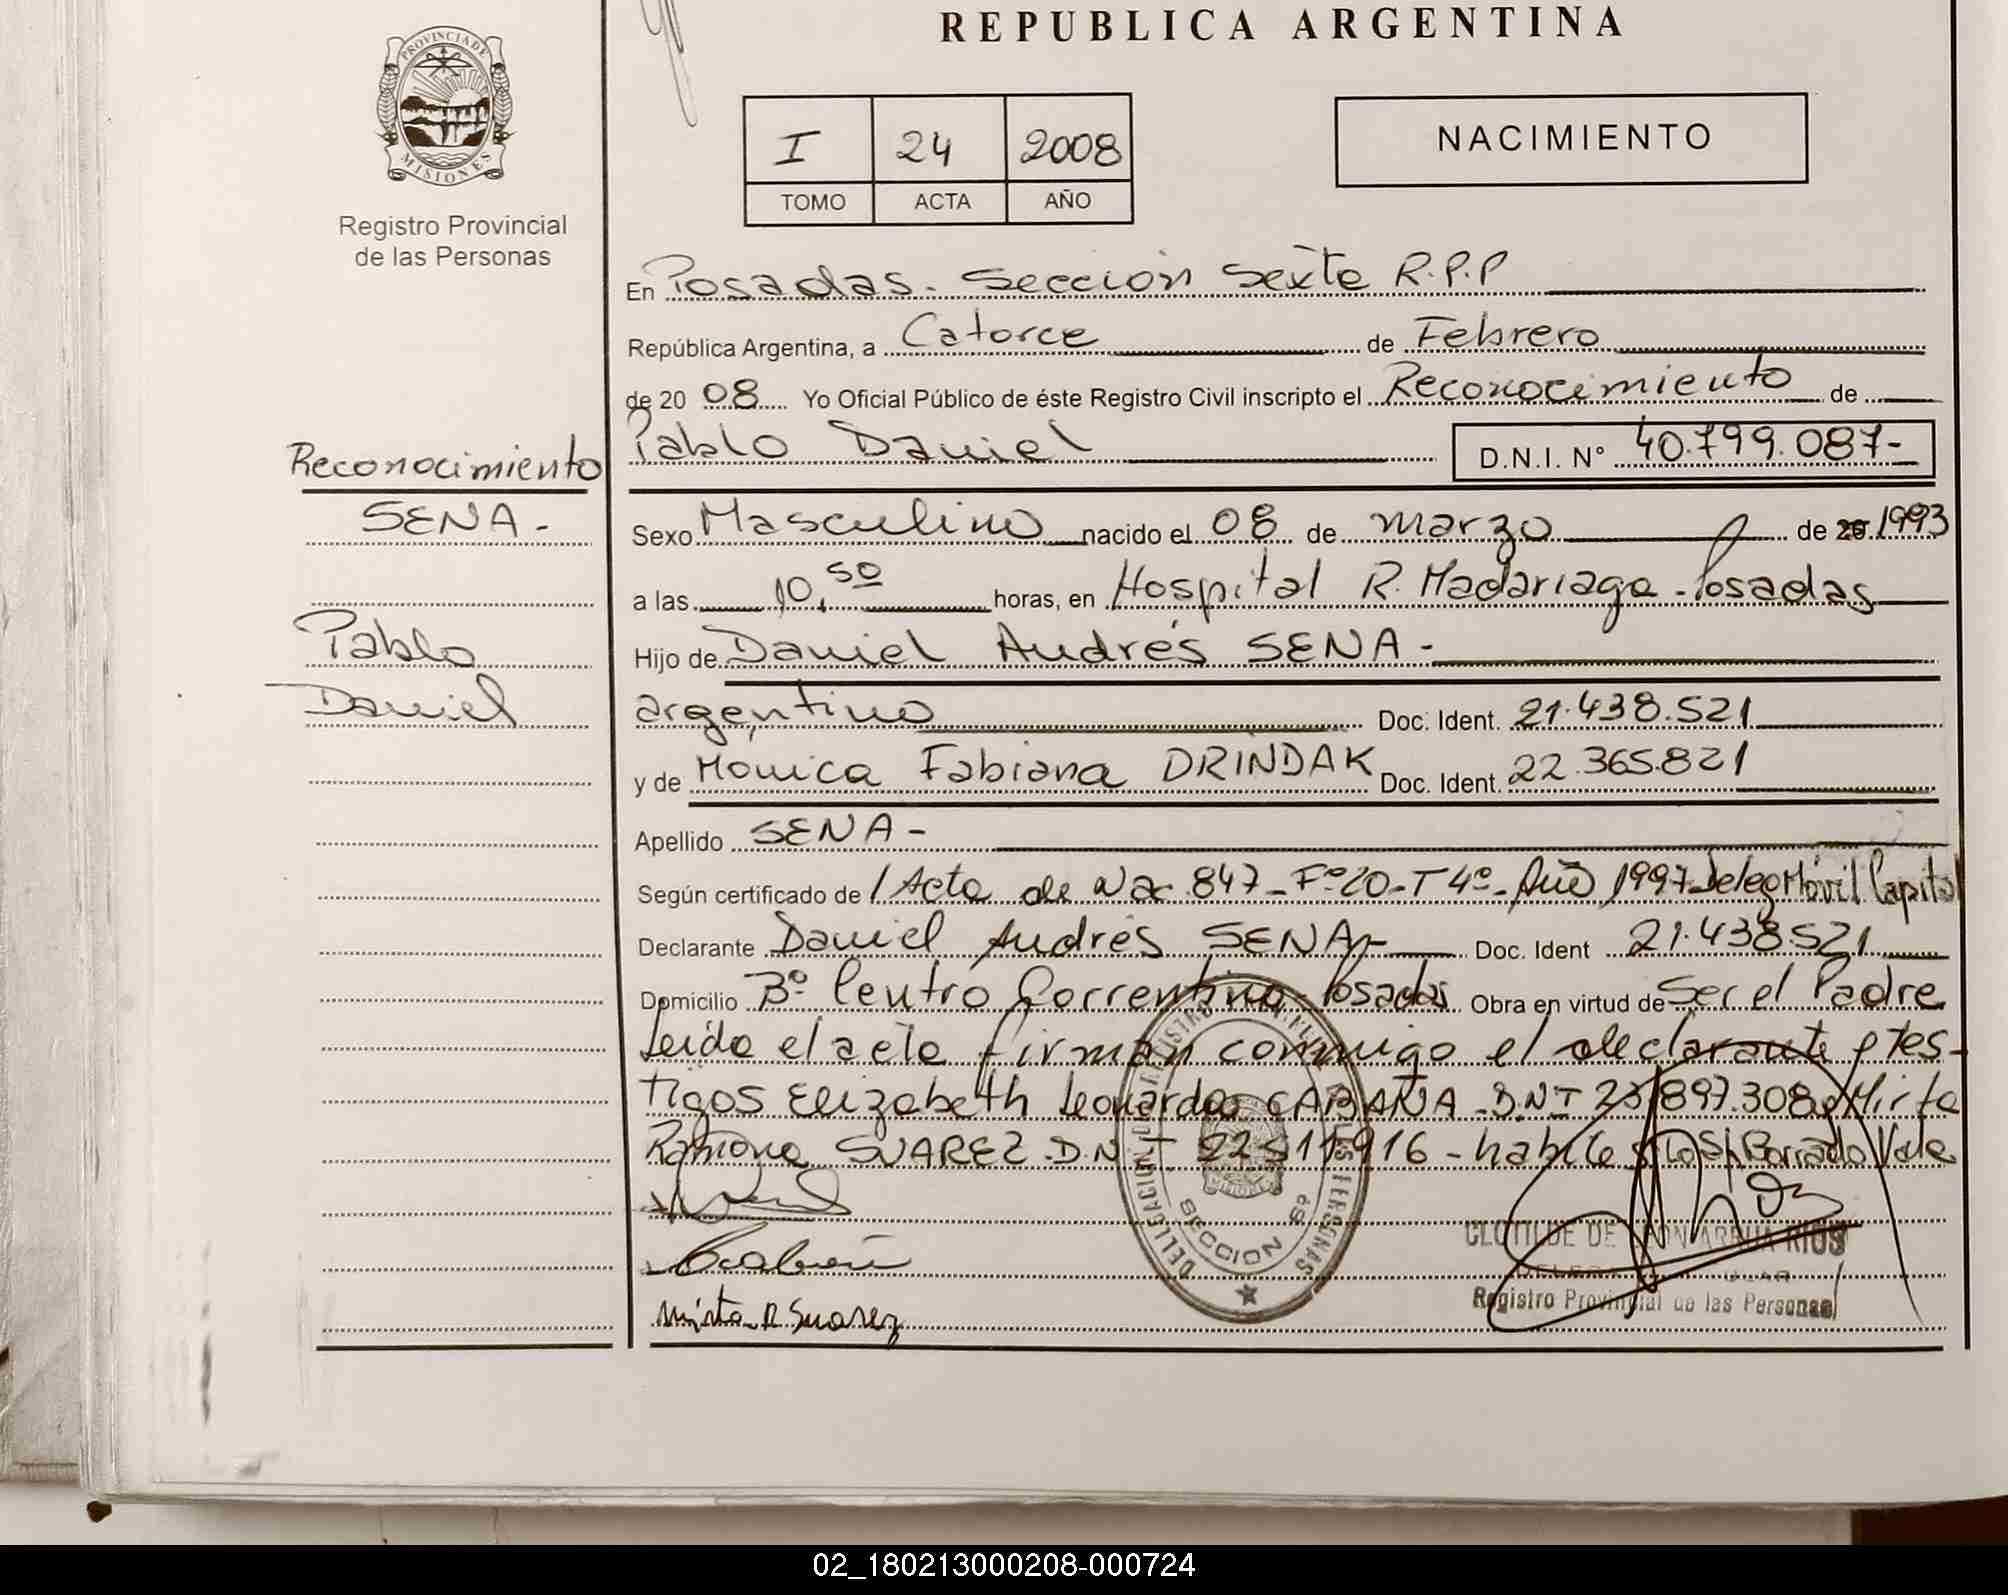 REPUBLICA ARGENTINA
PROVINCIA DE MISIONES
Registro Provincial
de las Personas
I 24 2008
TOMO ACTA AÑO
NACIMIENTO
En Posadas. Sección Sexta R.P.P
República Argentina, a Catorce de Febrero
de 20 08 Yo Oficial Público de éste Registro Civil inscripto el Reconocimiento de
Pablo Daniel D.N.I. N° 40.799.087-
Reconocimiento
SENA-
Pablo
Daniel
Sexo Masculino nacido el 08 de marzo de 20 1993
a las 10,50 horas, en Hospital R. Madariaga - Posadas
Hijo de Daniel Andrés SENA-
argentino Doc. Ident. 21.438.521
y de Monica Fabiana DRINDAK Doc. Ident. 22.365.821
Apellido SENA-
Según certificado de Acta de Nac 847- F°20-T4°- Año 1997 Deleg Móvil Capital
Declarante Daniel Andrés SENA- Doc. Ident 21.438.521
Domicilio B° Centro Correntino Posadas Obra en virtud de Ser el Padre
Leido el acta firman conmigo el declarante y tes-
tigos Elizabeth Leonarda CABAÑA D.N.I 23.897.308 y Mirta
Ramona SUAREZ D.N.I 22.511.916 - habile S/ Borrado Vale
Mirta R Suarez
DELEGACION DEL REGISTRO PROVINCIAL DE LAS PERSONAS
SECCION 6ª
CLOTILDE DE RIOS
Registro Provincial de las Personas
02_180213000208-000724